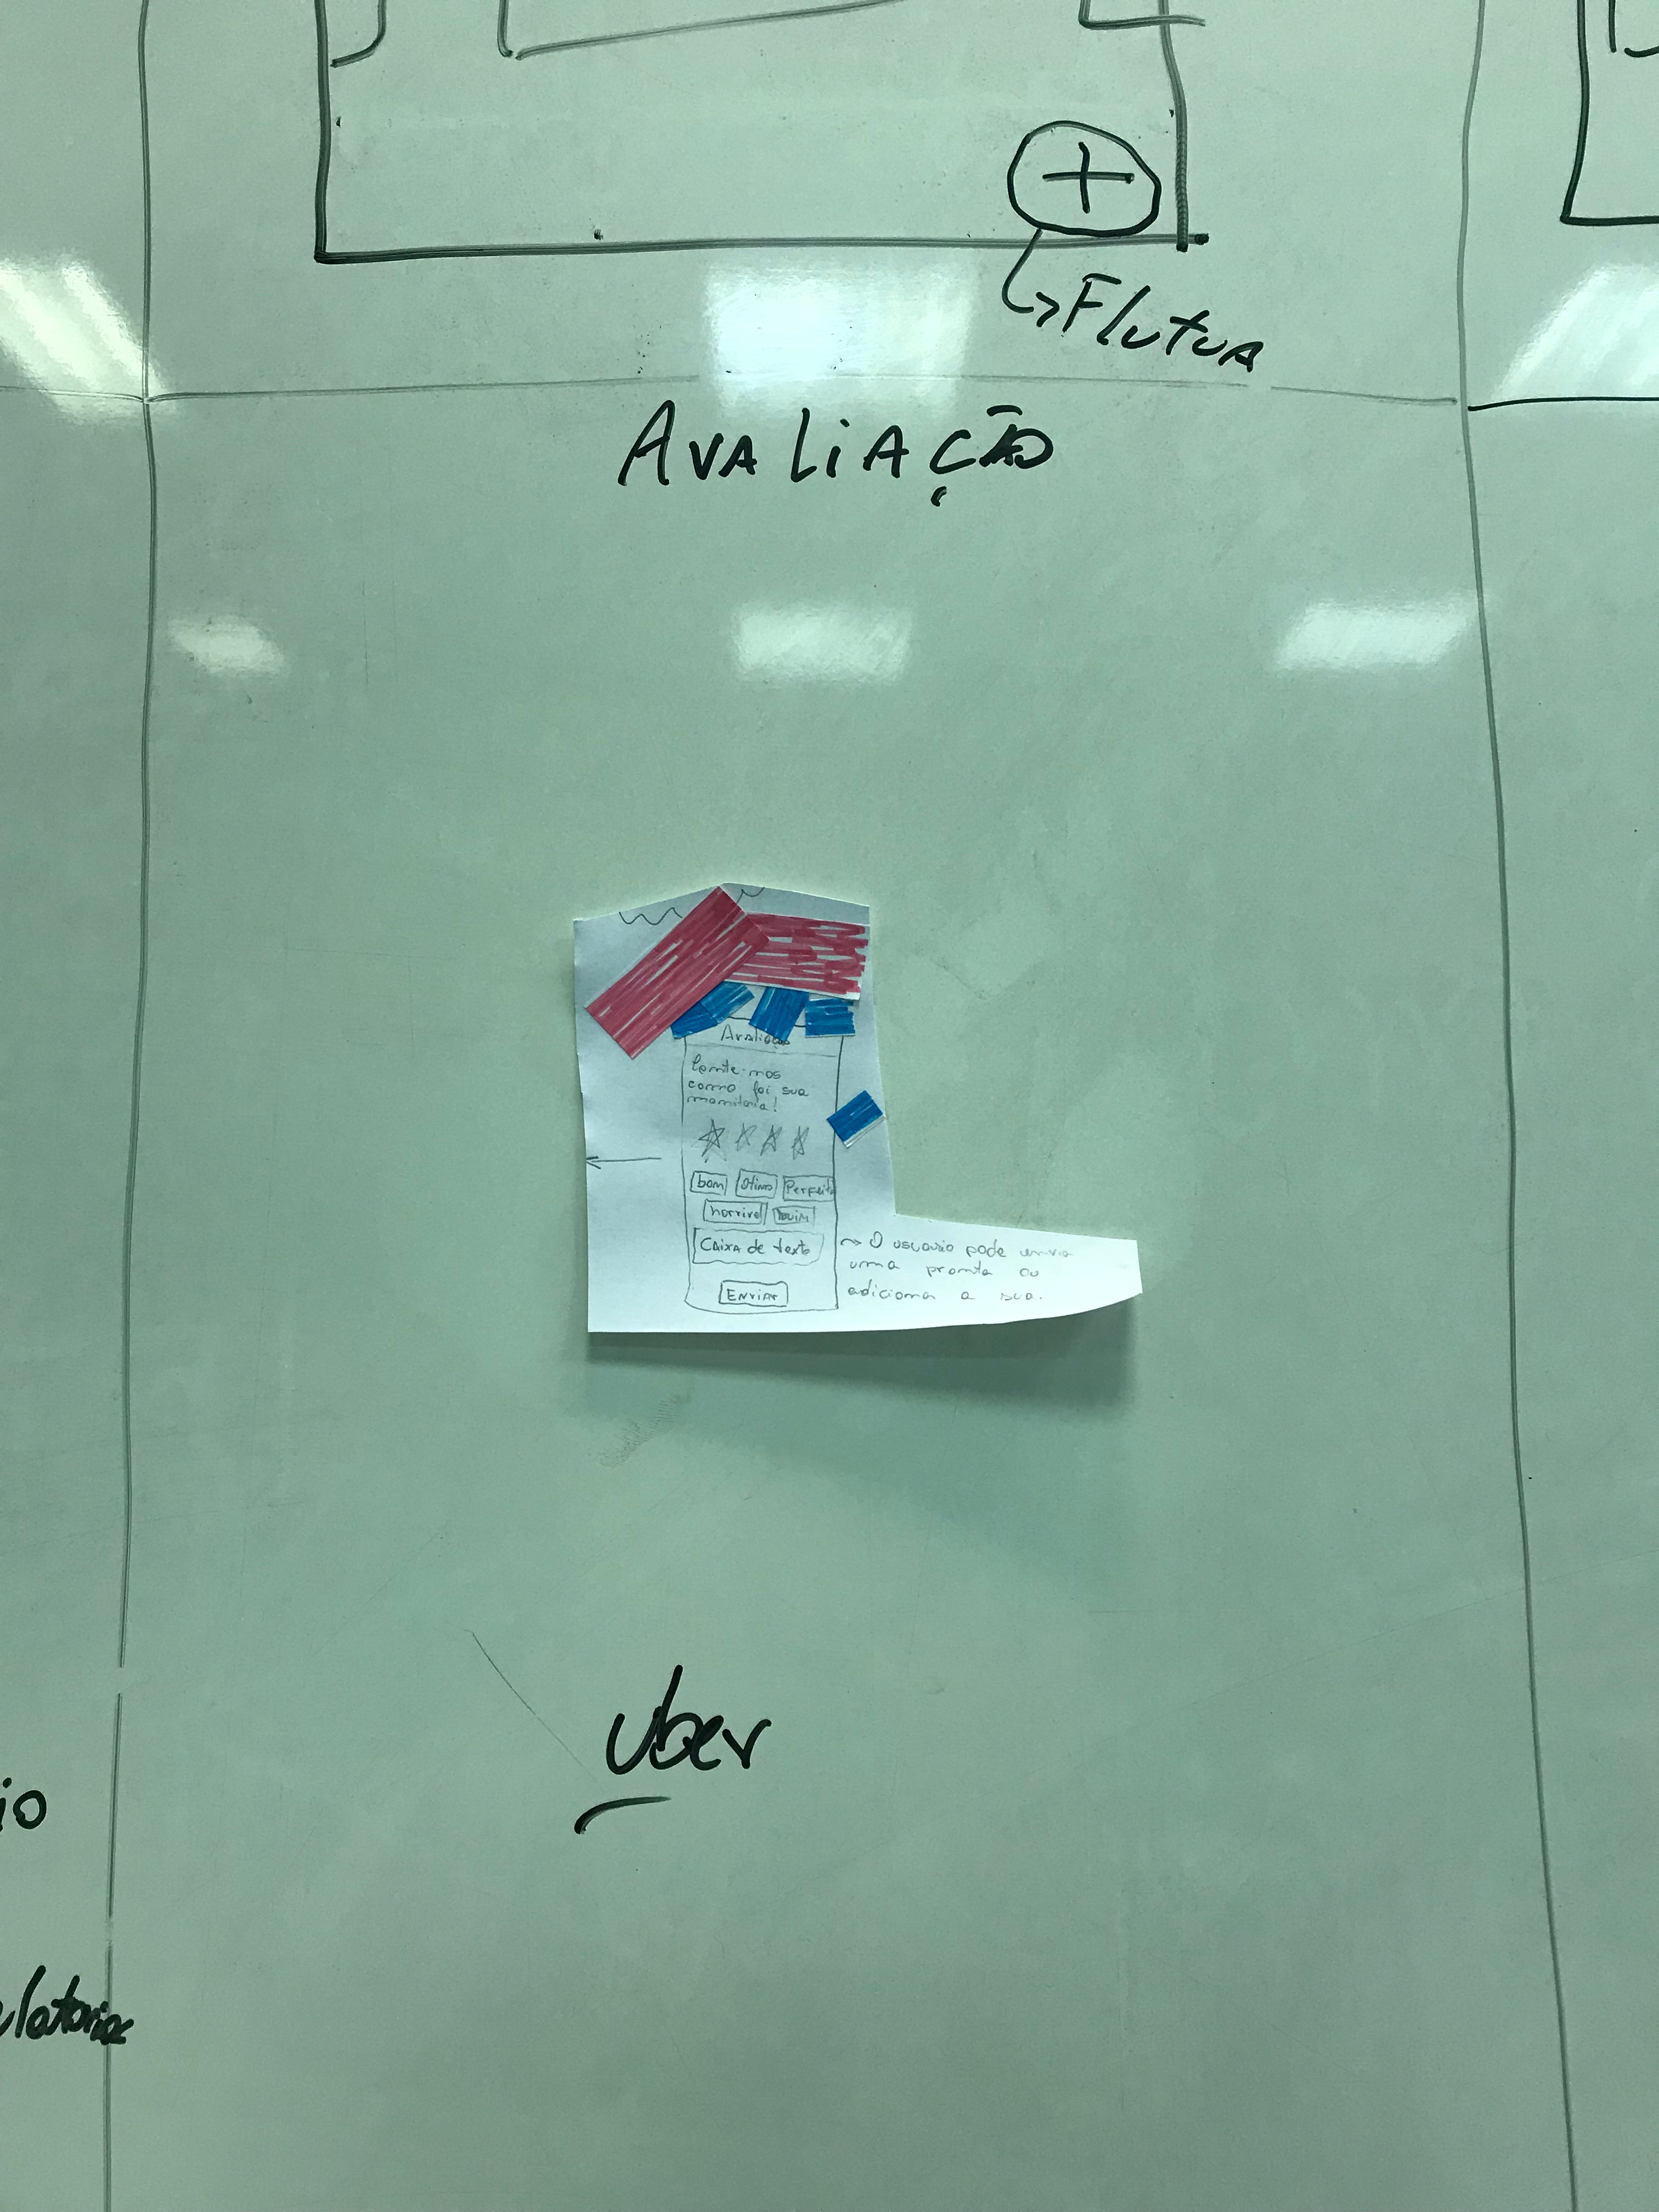 +
Flutua
AVALIAÇÃO
Avaliação
Conte-nos
como foi sua
monitoria!
bom
Ótimo
Perfeito
horrivel
ruim
CAIXA de texto
ENVIAR
O usuario pode envia
uma pronta ou
adiciona a sua.
Uber
io